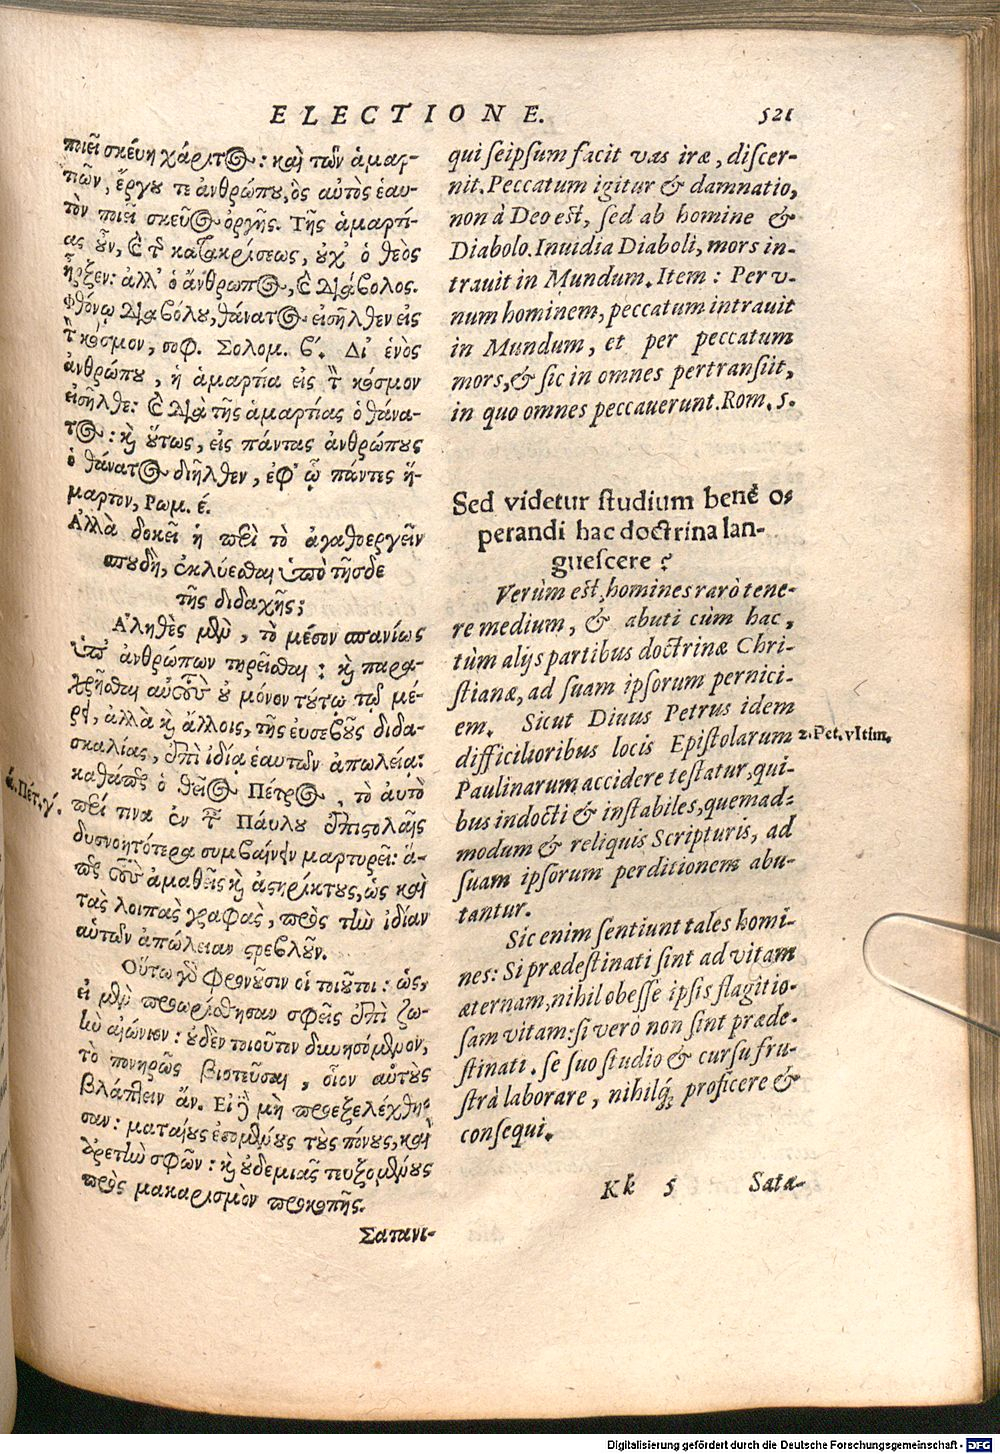 ELECTIONE.
521
ποιεῖ σκεύη χάριτος: καὶ τῶν ἁμαρ-
τιῶν, ἔργου τε ἀνθρώπου, ὃς αὐτὸς ἑαυ-
τὸν ποιεῖ σκεῦος ὀργῆς. Τῆς ἁμαρτί-
ας οὖν, καὶ τοῦ κατακρίσεως, οὐχ ὁ θεὸς
ἦρξεν: ἀλλ' ὁ ἄνθρωπος, καὶ διάβολος.
Φθόνῳ διαβόλου, θάνατος εἰσῆλθεν εἰς
τὸν κόσμον, σοφ. Σολομ. β'. Δι' ἑνὸς
ἀνθρώπου, ἡ ἁμαρτία εἰς τὸν κόσμον
εἰσῆλθε: καὶ διὰ τῆς ἁμαρτίας ὁ θάνα-
τος: καὶ οὕτως, εἰς πάντας ἀνθρώπους
ὁ θάνατος διῆλθεν, ἐφ' ᾧ πάντες ἥ-
μαρτον, Ρωμ. έ.
Ἀλλὰ δοκεῖ ἡ περὶ τὸ ἀγαθοεργεῖν
σπουδὴ, ἐκλύεσθαι ὑπὸ τῆσδε
τῆς διδαχῆς;
Ἀληθὲς μὲν, τὸ μέσον σπανίως
ὑπ' ἀνθρώπων τηρεῖσθαι: καὶ παρα-
χρῆσθαι αὐτοὺς οὐ μόνον τούτῳ τῷ μέ-
ρει, ἀλλὰ καὶ ἄλλοις, τῆς εὐσεβοῦς διδα-
σκαλίας, ἐπὶ ἰδίᾳ ἑαυτῶν ἀπωλείᾳ:
καθάπερ ὁ θεῖος Πέτρος, τὸ αὐτὸ
ά. Πέτ. γ'.
περί τινα ἐν ταῖς Παύλου ἐπιστολαῖς
δυσνοητότερα συμβαίνειν μαρτυρεῖ: ἅ-
περ τοὺς ἀμαθεῖς καὶ ἀστηρίκτους, ὡς καὶ
τὰς λοιπὰς γραφὰς, πρὸς τὴν ἰδίαν
αὑτῶν ἀπώλειαν στρεβλοῦν.
Οὕτω γὰρ φρονοῦσιν οἱ τοιοῦτοι: ὡς,
εἰ μὲν προωρίσθησαν σφεῖς ἐπὶ ζω-
ὴν αἰώνιον: οὐδὲν τοιοῦτον δυνησόμενον,
τὸ πονηρῶς βιοτεῦσαι, οἷον αὐτοὺς
βλάπτειν ἄν. Εἰ δὲ μὴ προεξελέχθη-
σαν: ματαίους ἐσομένους τοὺς πόνους, καὶ
ἀρετὴν σφῶν: καὶ οὐδεμιᾶς τευξομένους
πρὸς μακαρισμὸν προκοπῆς.
Σατανι-
qui seipsum facit vas iræ, discer-
nit. Peccatum igitur & damnatio,
non à Deo est, sed ab homine &
Diabolo. Inuidia Diaboli, mors in-
trauit in Mundum. Item: Per v-
num hominem, peccatum intrauit
in Mundum, et per peccatum
mors, & sic in omnes pertransiit,
in quo omnes peccauerunt. Rom. 5.
Sed videtur studium benè o-
perandi hac doctrina lan-
guescere?
Verùm est, homines rarò tene-
re medium, & abuti cùm hac,
tùm alijs partibus doctrinæ Chri-
stianæ, ad suam ipsorum pernici-
em. Sicut Diuus Petrus idem
difficilioribus locis Epistolarum
2. Pet. vltim.
Paulinarum accidere testatur, qui-
bus indocti & instabiles, quemad-
modum & reliquis Scripturis, ad
suam ipsorum perditionem abu-
tantur.
Sic enim sentiunt tales homi-
nes: Si prædestinati sint ad vitam
æternam, nihil obesse ipsis flagitio-
sam vitam: si verò non sint præde-
stinati. se suo studio & cursu fru-
strà laborare, nihilq́; proficere &
consequi.
Kk 5
Satæ-
Digitalisierung gefördert durch die Deutsche Forschungsgemeinschaft - DFG